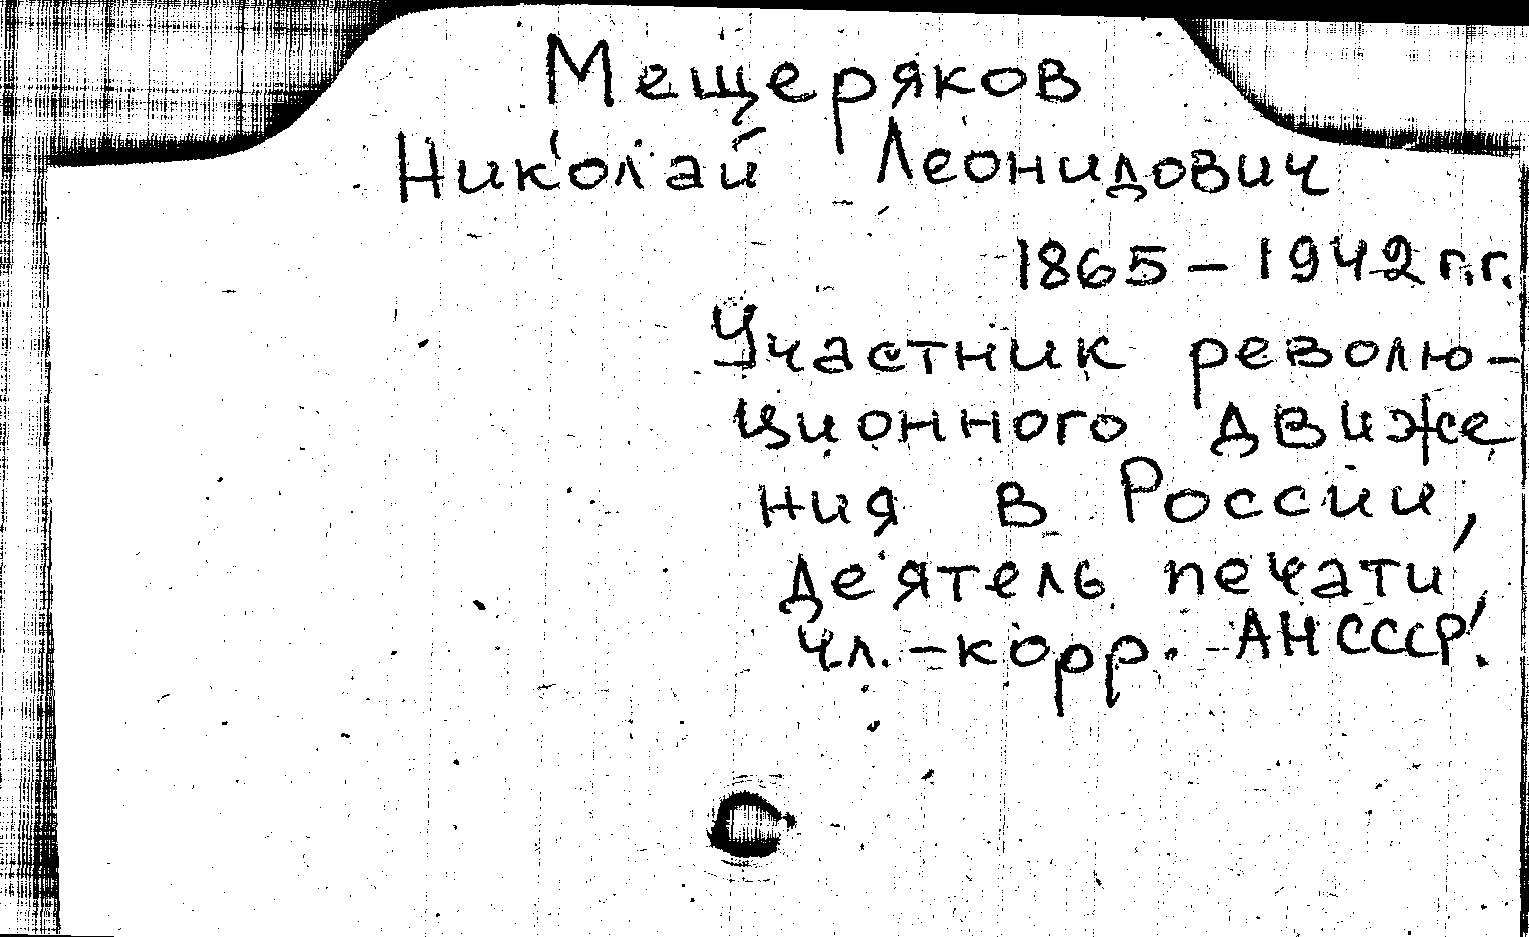 Мещеряков
Николай Леонидович
1865 – 1942 г.г.
Участник револю-
ционного движе
ния в России,
деятель печати,
чл.-корр. АН СССР.